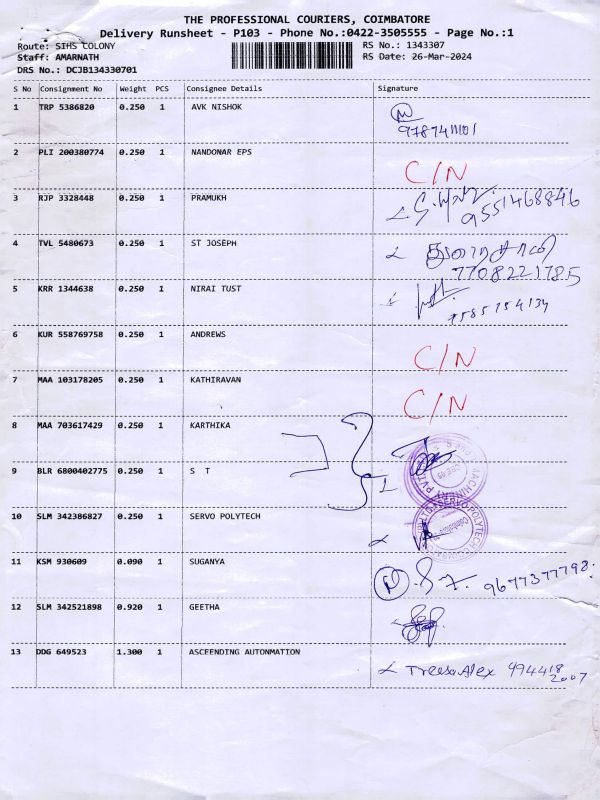 THE PROFESSIONAL COURIERS, COIMBATORE
Delivery Runsheet - P103 - Phone No.:0422-3505555 - Page No.:1
Route: SIHS COLONY
RS No.: 1343307
Staff: AMARNATH
RS Date: 26-Mar-2024
DRS No.: DCJB134330701
S No Consignment No Weight PCS Consignee Details Signature
1 TRP 5386820 0.250 1 AVK NISHOK
2 PLI 200380774 0.250 1 NANDONAR EPS C/N
3 RJP 3328448 0.250 1 PRAMUKH
9551468846
4 TVL 5480673 0.250 1 ST JOSEPH
7708221785
5 KRR 1344638 0.250 1 NIRAI TUST
6 KUR 558769758 0.250 1 ANDREWS C/N
7 MAA 103178205 0.250 1 KATHIRAVAN C/N
8 MAA 703617429 0.250 1 KARTHIKA
9 BLR 6800402775 0.250 1 S T
10 SLM 342386827 0.250 1 SERVO POLYTECH
11 KSM 930609 0.090 1 SUGANYA 9677377798
12 SLM 342521898 0.920 1 GEETHA
13 DDG 649523 1.300 1 ASCEENDING AUTONMATION Treesa Alex 9944182007